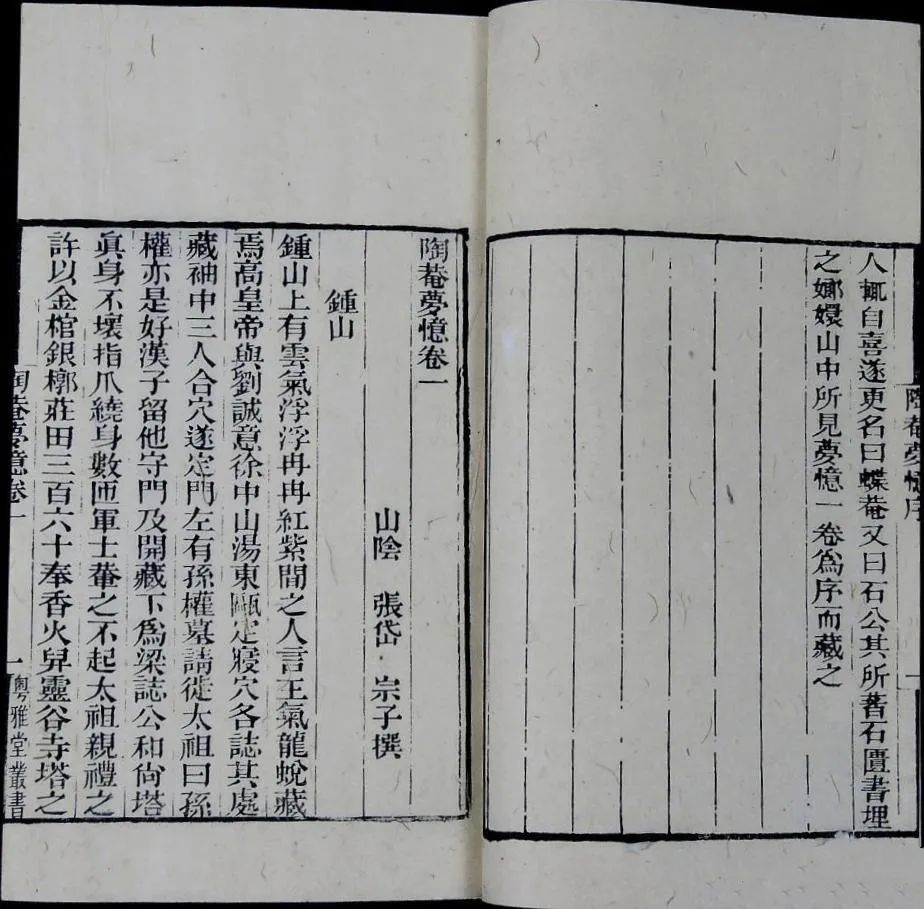 人輒自喜遂更名曰蝶菴又曰石公其所著石匱書埋
之嫏嬛山中所見夢憶一卷爲序而藏之
陶菴夢憶序
一
陶菴夢憶卷一
山陰 張岱 宗子撰
鍾山
鍾山上有雲氣浮浮冉冉紅紫間之人言王氣龍蛻藏
焉高皇帝與劉誠意徐中山湯東甌定寢穴各誌其處
藏袖中三人合穴遂定門左有孫權墓請徙太祖曰孫
權亦是好漢子留他守門及開藏下爲梁誌公和尙塔
眞身不壞指爪繞身數匝軍士輂之不起太祖親禮之
許以金棺銀槨莊田三百六十奉香火舁靈谷寺塔之
陶菴夢憶卷一
一
粵雅堂叢書